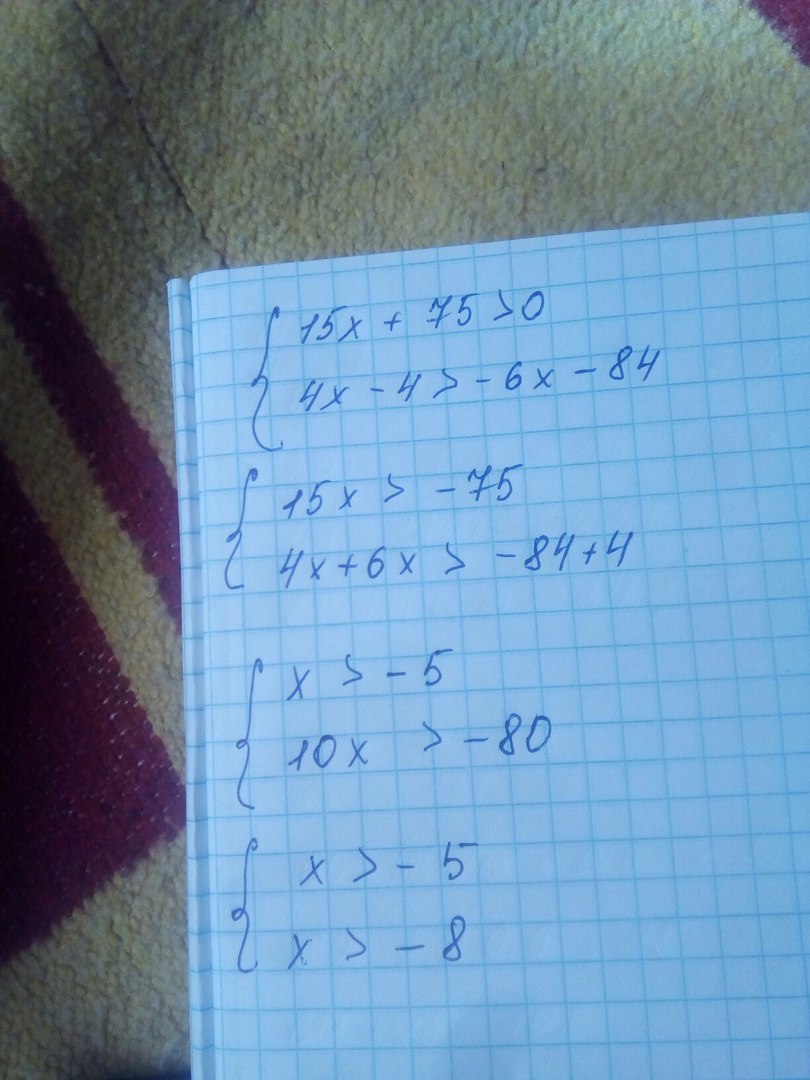 15x + 75 > 0
4x - 4 > - 6x - 84
15x > - 75
4x + 6x > - 84 + 4
x > - 5
10x > - 80
x > - 5
x > - 8